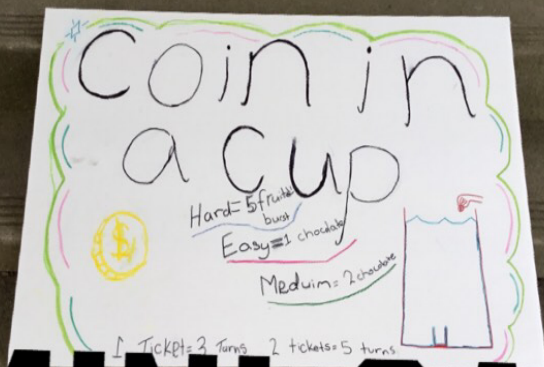 Coin in
a Cup
Hard = 5 fruit
burst
Easy = 1 chocolate
Meduim = 2 chocolate
1 Ticket = 3 Turns 2 tickets = 5 turns